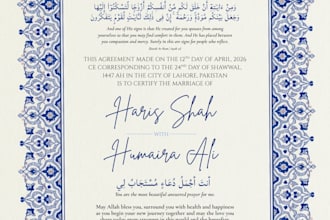 وَمِنْ ءَايَٰتِهِۦٓ أَنْ خَلَقَ لَكُم مِّنْ أَنفُسِكُمْ أَزْوَٰجًا لِّتَسْكُنُوٓا۟ إِلَيْهَا
وَجَعَلَ بَيْنَكُم مَّوَدَّةً وَرَحْمَةً ۚ إِنَّ فِى ذَٰلِكَ لَءَايَٰتٍ لِّقَوْمٍ يَتَفَكَّرُونَ
And one of His signs is that He created for you spouses from among
yourselves so that you may find comfort in them. And He has placed between
you compassion and mercy. Surely in this are signs for people who reflect.
THIS AGREEMENT MADE ON THE 12TH DAY OF APRIL, 2026
CE CORRESPONDING TO THE 24TH DAY OF SHAWWAL,
1447 AH IN THE CITY OF LAHORE, PAKISTAN
IS TO CERTIFY THE MARRIAGE OF
Haris Shah
WITH
Humaira Ali
أنت أجمل دعاء مستجاب لي
You are the most beautiful answered prayer for me.
May Allah bless you, surround you with health and happiness
as you begin your new journey together and may the love you